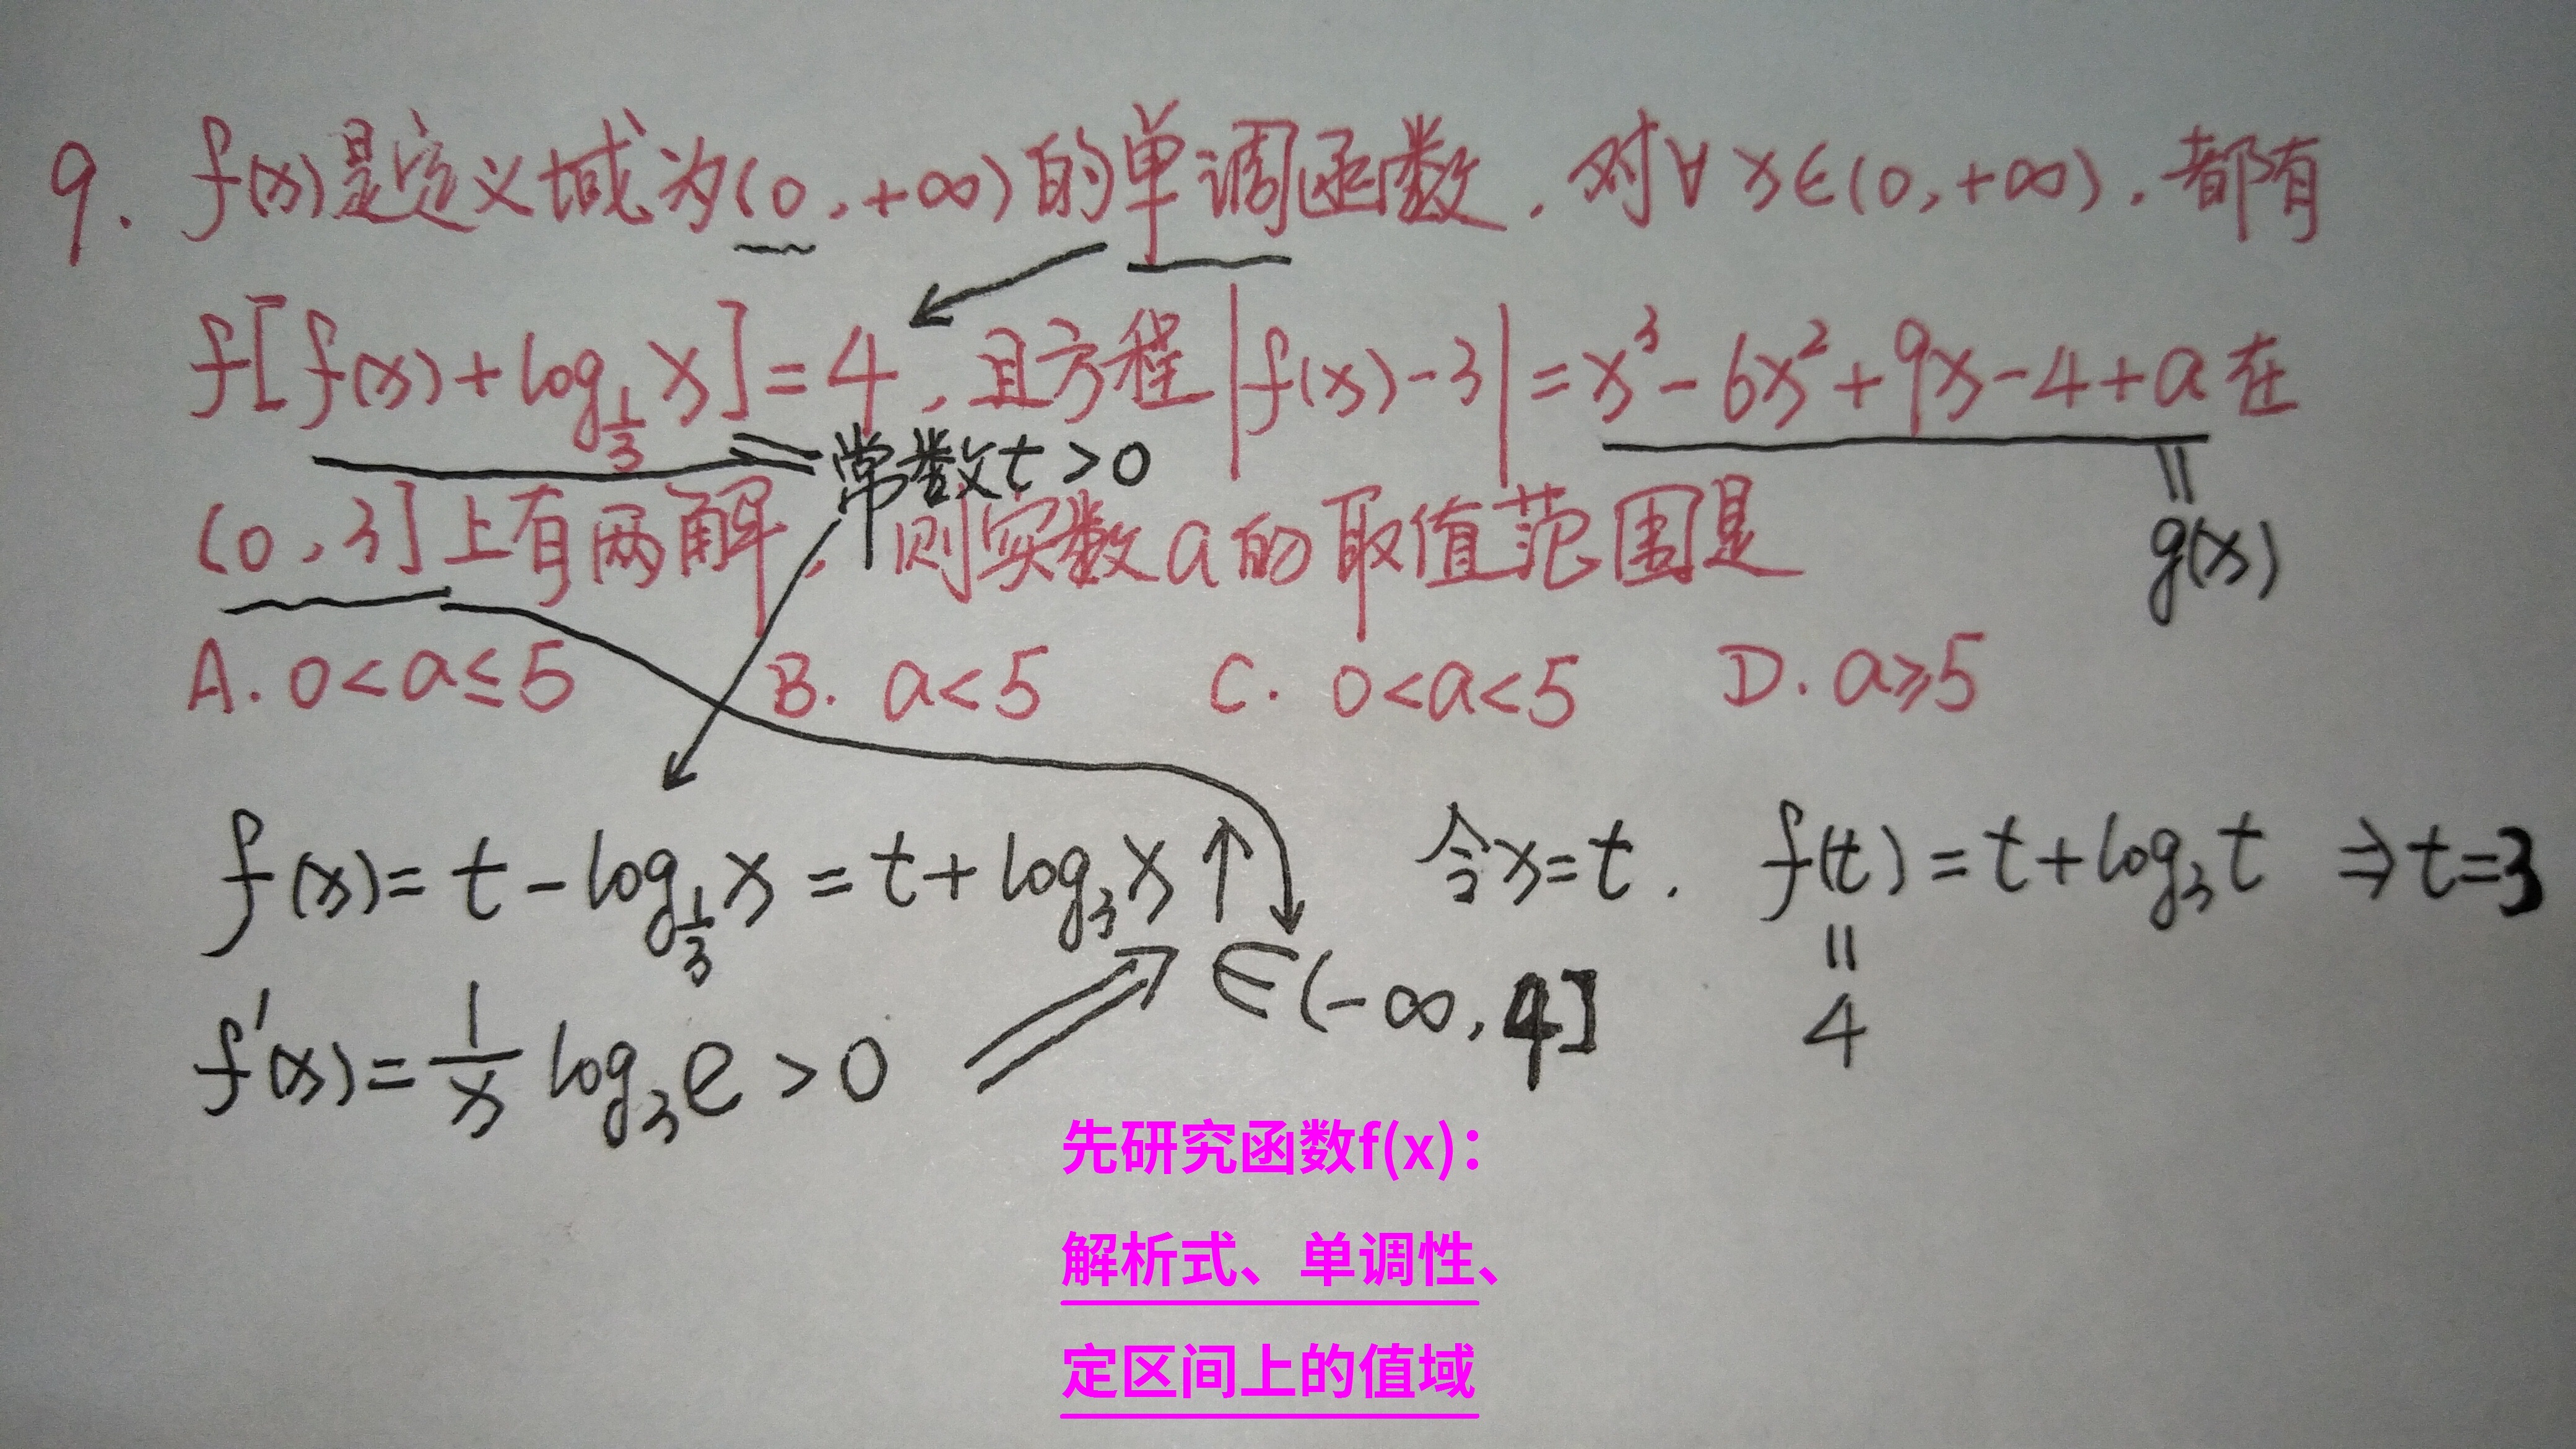 9. f(x)是定义域为(0,+∞)的单调函数，对∀x∈(0,+∞)，都有
f[f(x)+log_{1/3}x]=4，且方程|f(x)-3|=x³-6x²+9x-4+a在
=常数t>0
‖
g(x)
(0,3]上有两解，则实数a的取值范围是
A. 0<a≤5 B. a<5 C. 0<a<5 D. a≥5
f(x)=t-log_{1/3}x=t+log₃x↑ 令x=t. f(t)=t+log₃t ⇒t=3
‖
4
∈(-∞,4]
f'(x)=1/x log₃e>0 ⇒
先研究函数f(x)：
解析式、单调性、
定区间上的值域